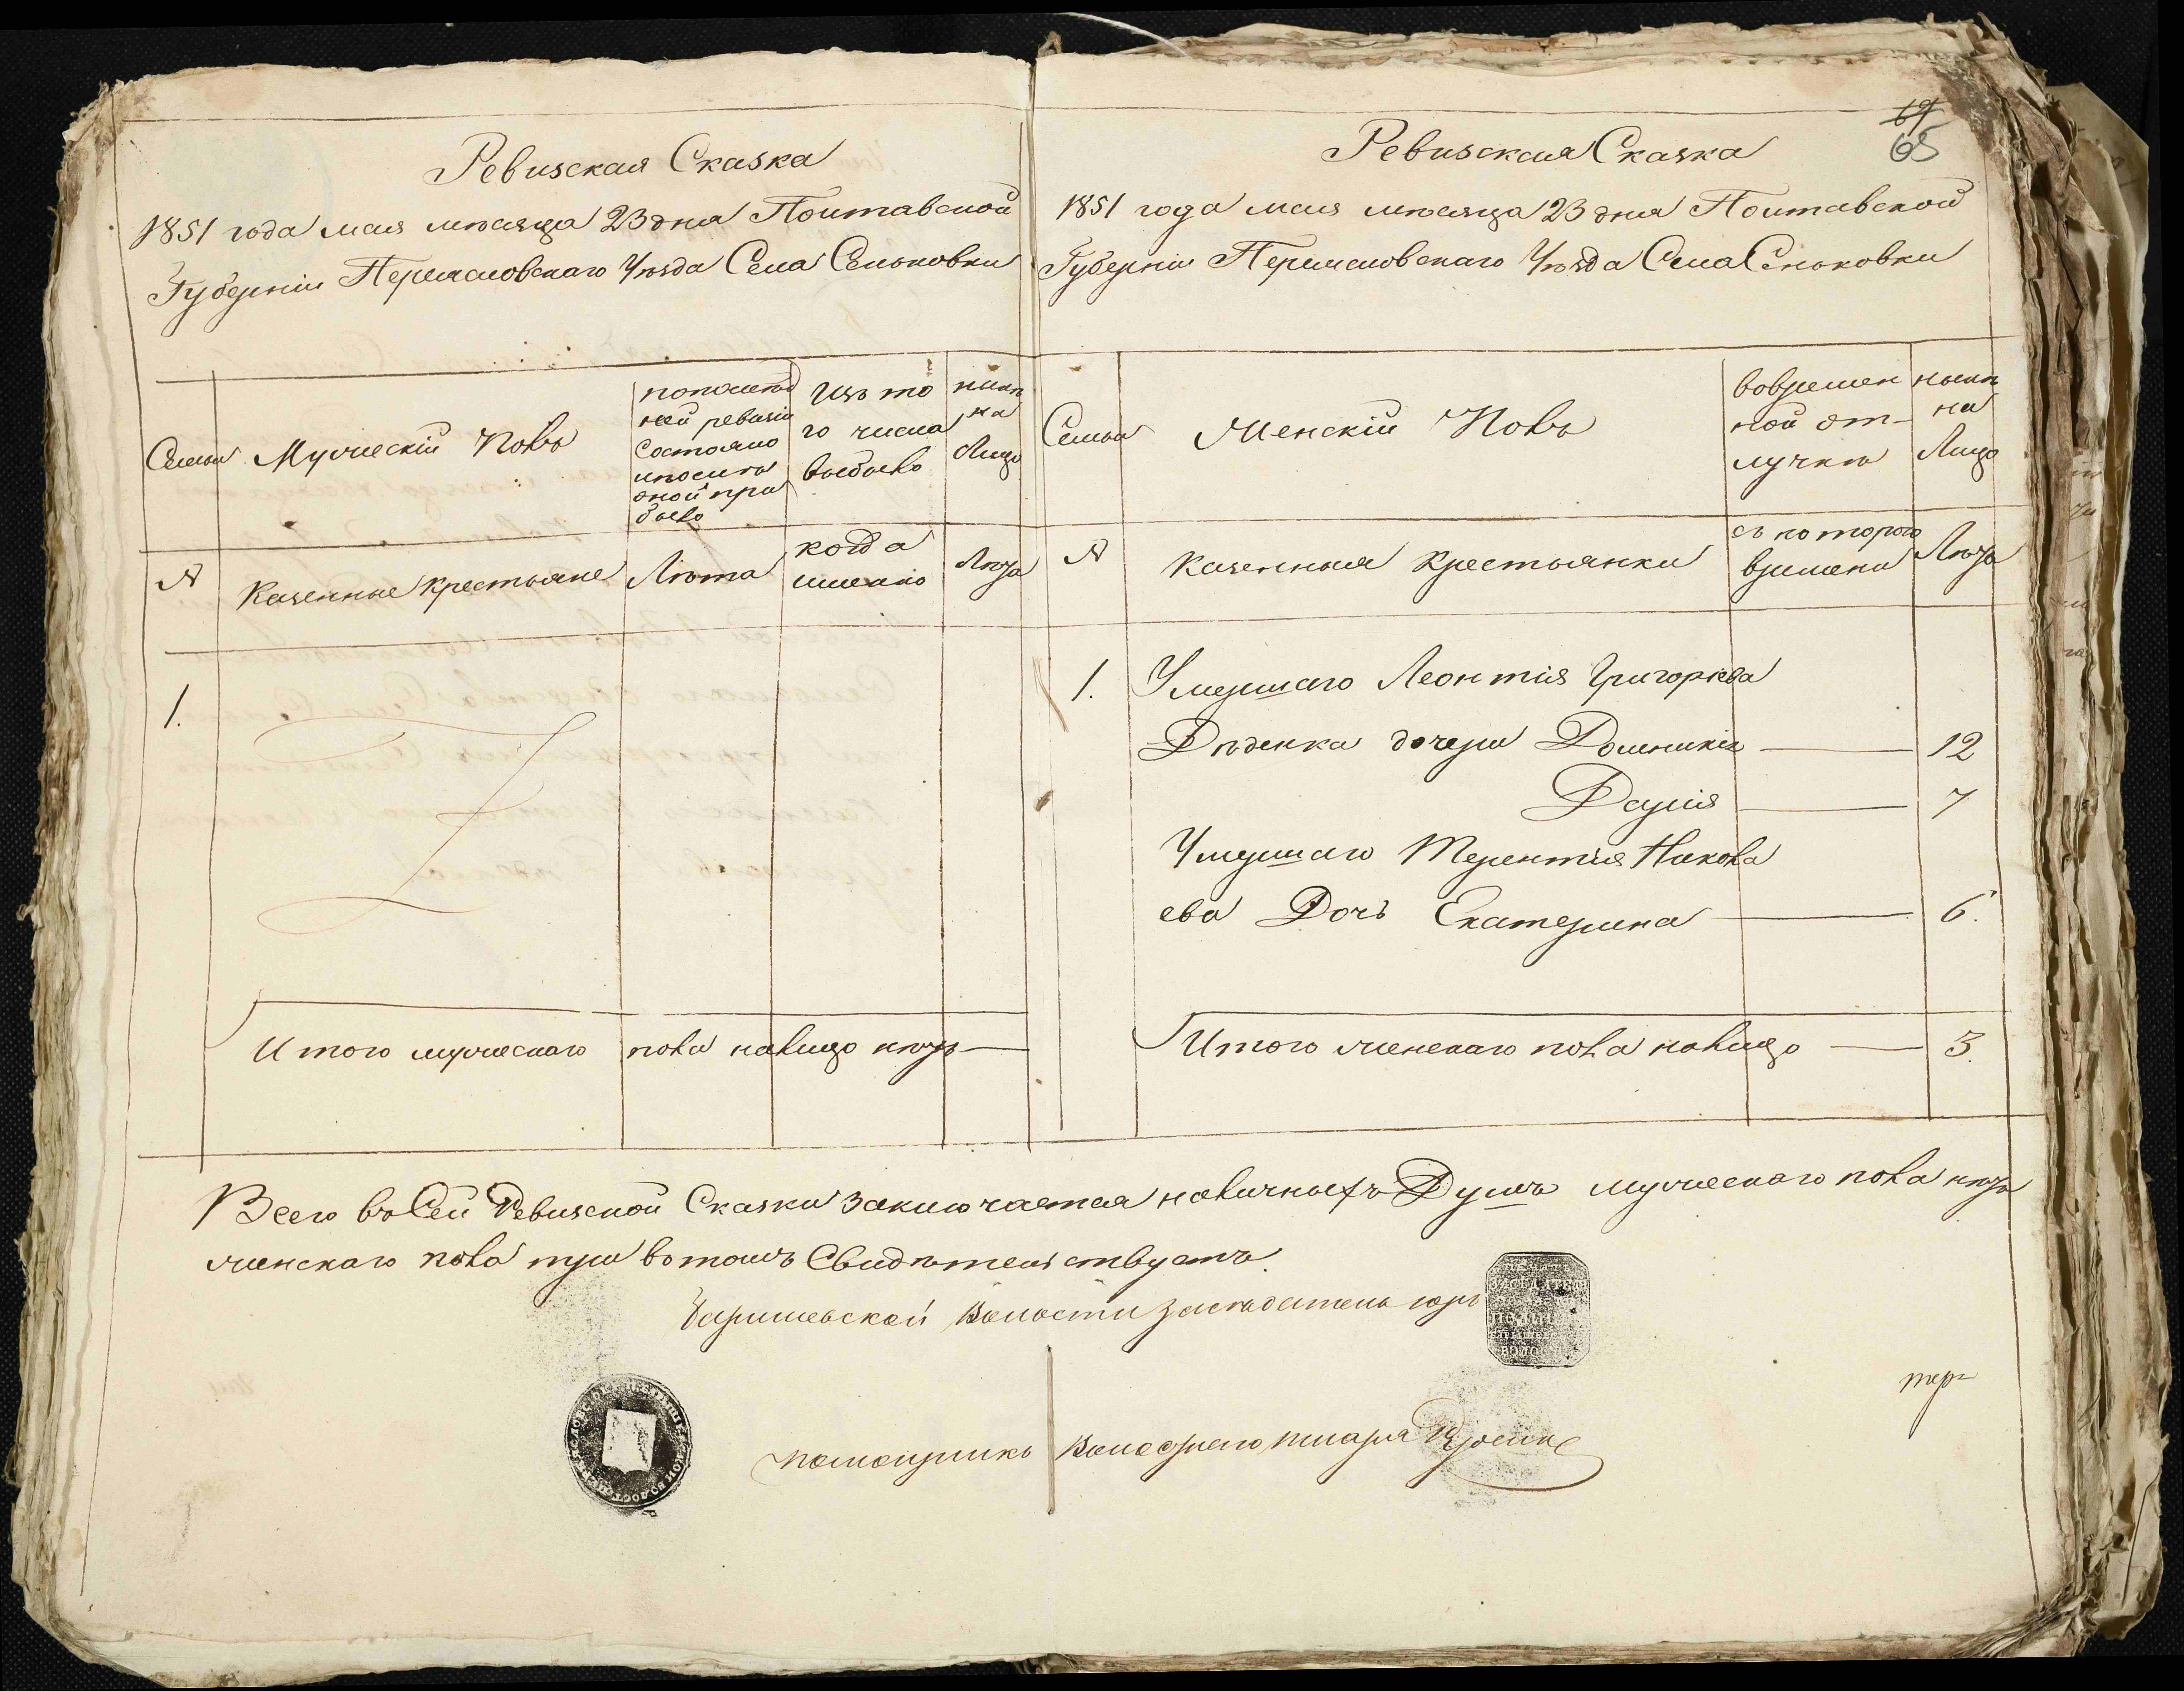 Ревизская Сказка
1851 года мая мѣсяца 23 дня Полтавской
Губерніи Переяславскаго Уѣзда Села Сеньковки
Семьи
Мужескій Полъ
по послѣд
ней ревизіи
состояло
и после
оной при
было
Изъ то
го числа
выбыло
нынѣ
на
Лицо
№
Казенные Крестьяне
Лѣта
когда
именно
Лѣта
1.
Итого мужескаго пола налицо нѣтъ
69
65
Ревизская Сказка
1851 года мая мѣсяца 23 дня Полтавской
Губерніи Переяславскаго Уѣзда Села Сеньковки
Семьи
Женскій Полъ
вовремен
ной от-
лучкѣ
нынѣ
на
Лицо
№
Казенныя Крестьянки
съ которого
времени
Лѣта
1. Умершаго Леонтія Григорьева
Дѣденка дочери Домникія 12
Дарія 7
Умершаго Терентия Никола
ева Дочь Екатерина 6.
Итого женскаго пола налицо 3.
Всего въ Сей Ревизской Сказки заключается наличныхъ Душъ мужескаго пола нѣтъ
женскаго пола три вотомъ Свидѣтельствуетъ.
волости засѣдатель
помощникъ Волостнаго писаря